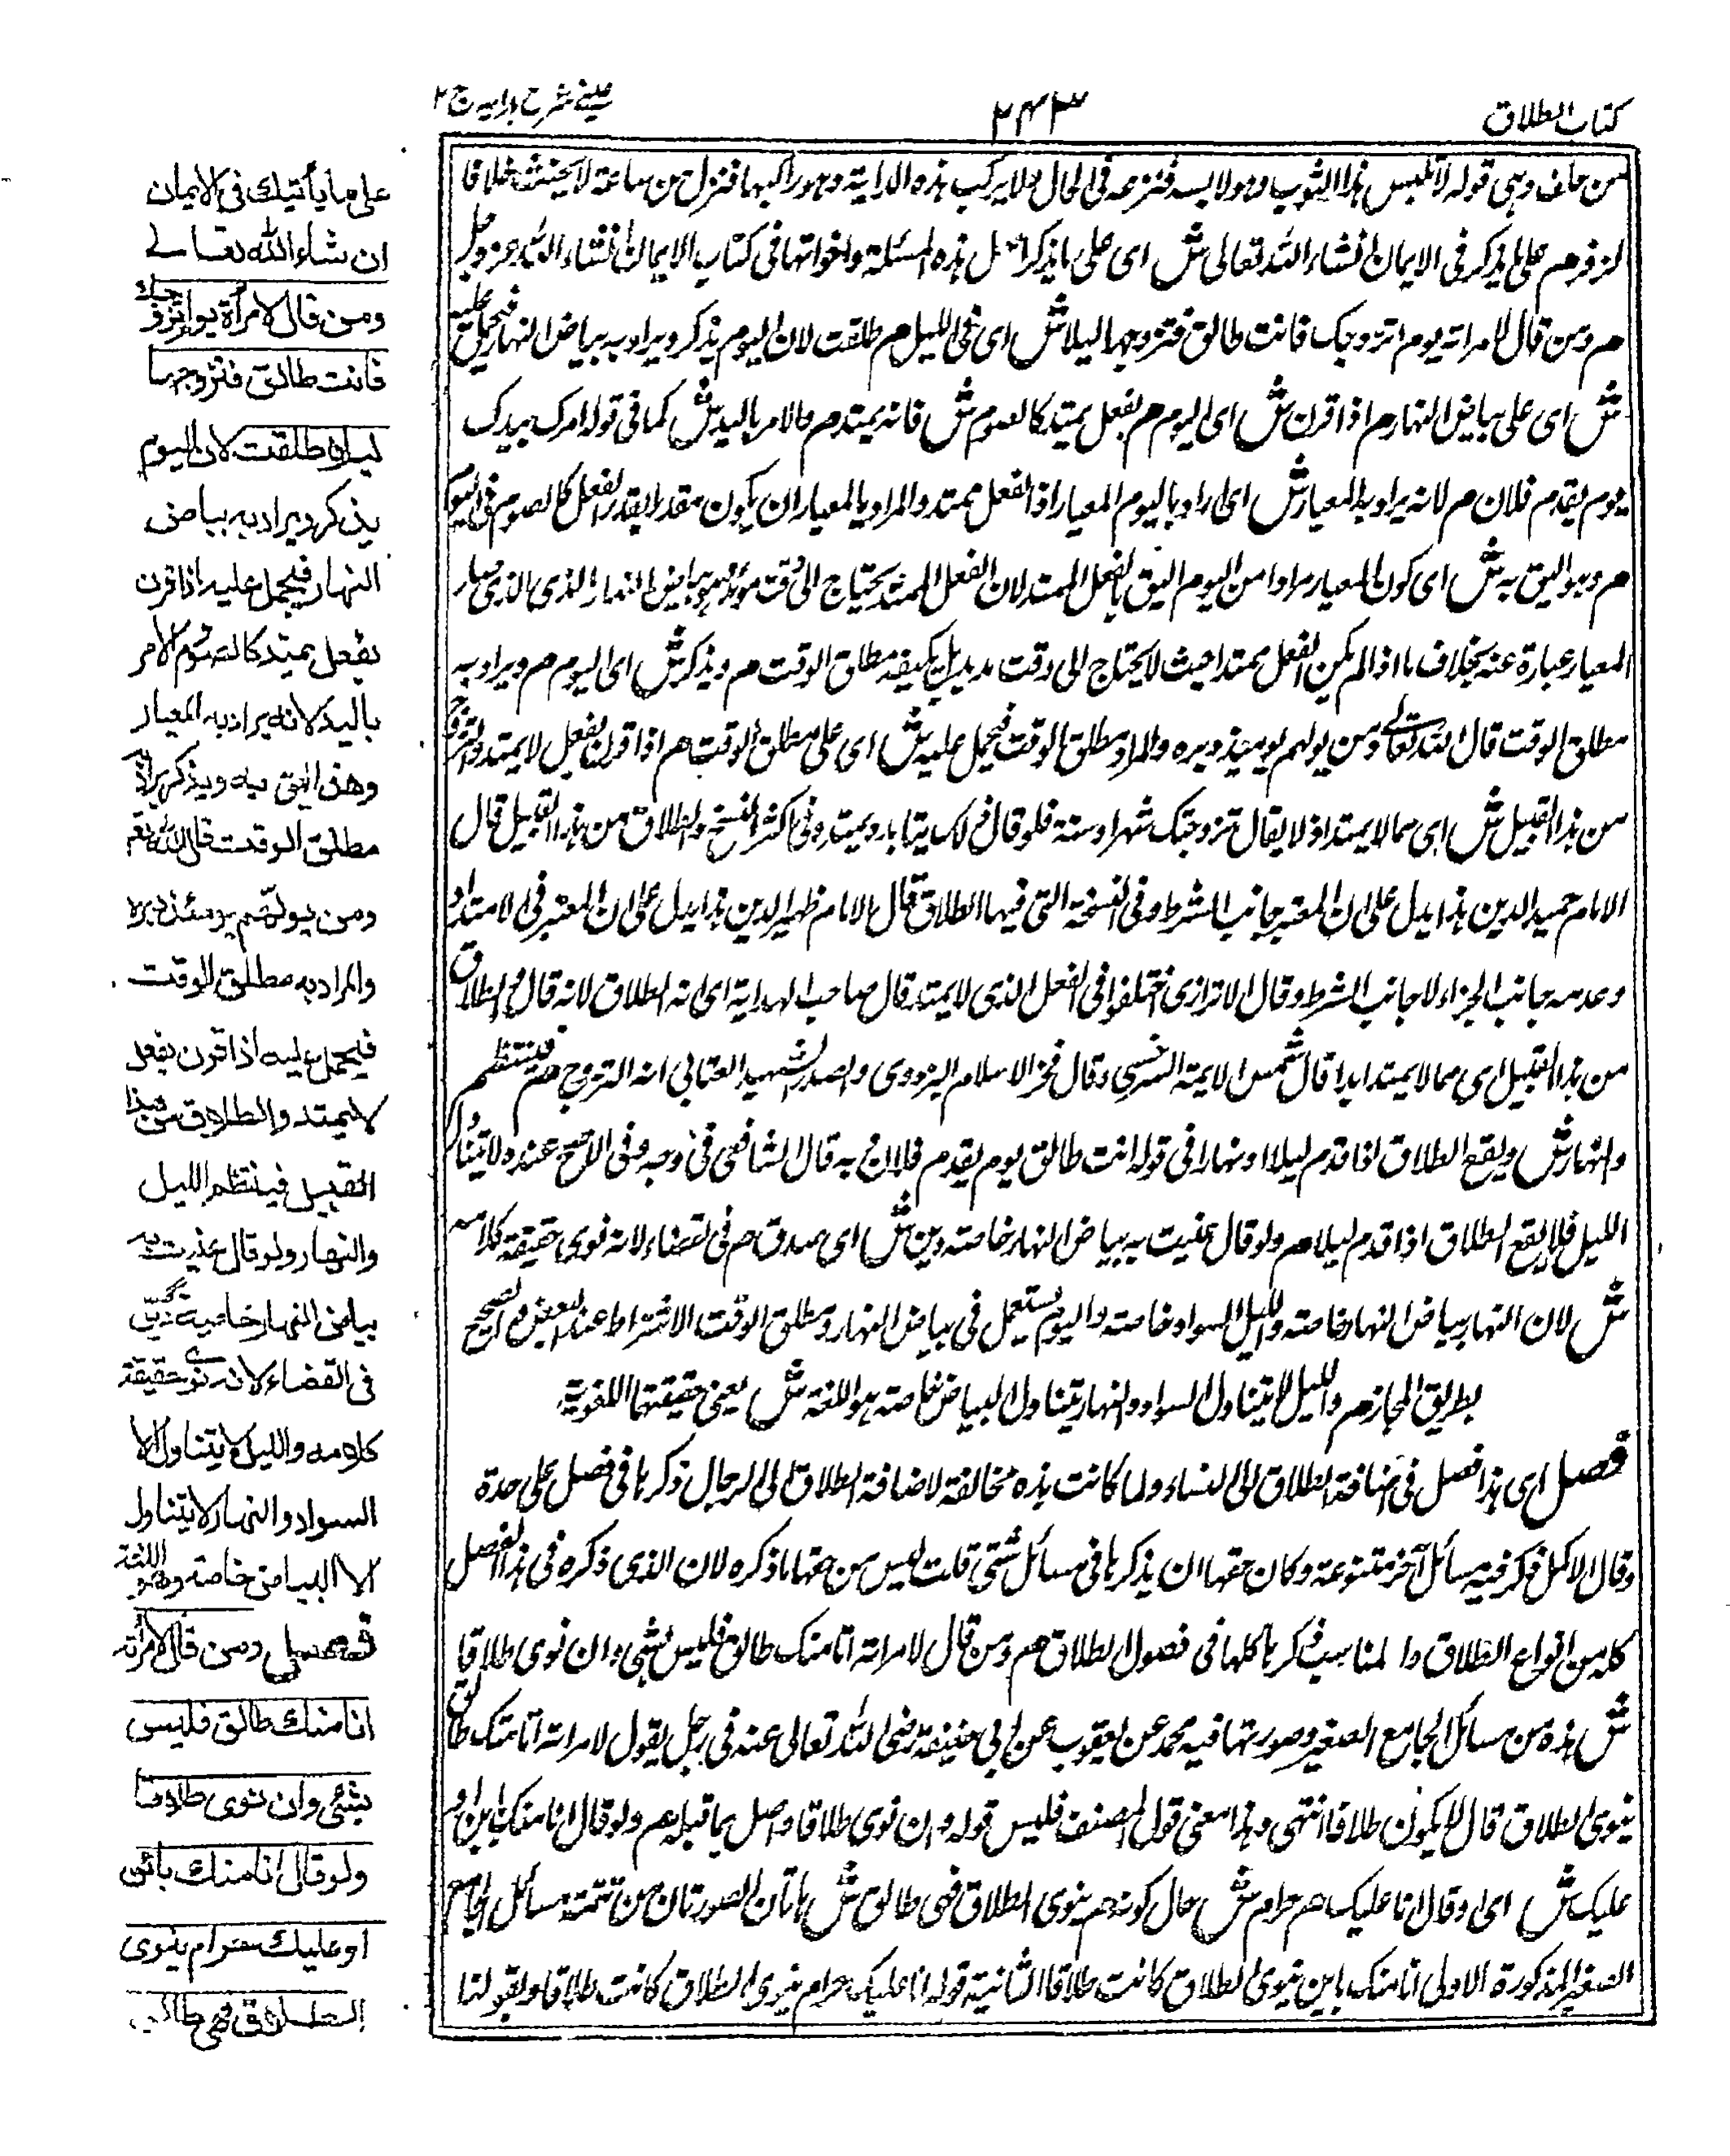 كتاب الطلاق
٢٤٣
عينے شرح ہدایہ ج ٢
من حلف وہی قولہ لا یلبس ہذا الثوب وہو لابسہ فنزعہ فی الحال ولا یرکب ہذہ الدابۃ وہو راکبہا فنزل من ساعۃ لا یحنث خلافا
لزفر م علی ما یذکر فی الایمان انشاء اللہ تعالی ش ای علی ما یذکر ہذہ المسئلۃ واخواتہا فی کتاب الایمان انشاء اللہ عز وجل
م ومن قال لامراتہ یوم اتزوجک فانت طالق فتزوجہا لیلا ش ای فی اللیل م طلقت لان الیوم یذکر ویراد بہ بیاض النہار فیحمل علیہ
ش ای علی بیاض النہار م اذا قرن ش ای الیوم م بفعل یمتد کالصوم ش فانہ یمتد م والامر بالید ش کما فی قولہ امرک بیدک
یوم یقدم فلان م لانہ یراد بہ المعیار ش ای اراد بالیوم المعیار اذ الفعل ممتد والمراد بالمعیار ان یکون مقدرا بقدر الفعل کالصوم فی الیوم
م وہو الیق بہ ش ای کون المعیار مرادا من الیوم الیق بالفعل الممتد لان الفعل الممتد یحتاج الی وقت وہو بیاض النہار الذی صار
المعیار عبارۃ عنہ بخلاف ما اذا لم یکن الفعل ممتدا حیث لا یحتاج الی وقت مدید بل یکفیہ مطلق الوقت م ویذکر ش ای الیوم م ویراد بہ
مطلق الوقت قال اللہ تعالی ومن یولہم یومئذ دبرہ والمراد مطلق الوقت فیحمل علیہ ش ای علی مطلق الوقت م اذا قرن بفعل لا یمتد والتزوج
من ہذا القبیل ش ای مما لا یمتد اذ لا یقال تزوجتک شہرا او سنۃ فلو قال وفی اکثر النسخ والطلاق من ہذا القبیل قال
الامام حمید الدین ہذا یدل علی ان المعتبر جانب الشرط وفی النسخۃ التی فیہا الطلاق قال الامام ظہیر الدین ہذا یدل علی ان المعتبر فی الامتداد
وعدمہ جانب الجزاء لا جانب الشرط وقال الاترازی اختلفوا فی الفعل الذی لا یمتد قال صاحب الہدایۃ ای انہ الطلاق لانہ قال والطلاق
من ہذا القبیل ای مما لا یمتد ابدا قال شمس الایمۃ السرخسی وقال فخر الاسلام البزدوی والصدر الشہید العتابی انہ التزوج م فینتظم اللیل
والنہار ش ویقع الطلاق اذا قدم لیلا او نہارا فی قولہ انت طالق یوم یقدم فلان وبہ قال الشافعی فی وجہ وفی الاصح عندہ لا یتناول
اللیل فلا یقع الطلاق اذا قدم لیلا م ولو قال عنیت بہ بیاض النہار خاصۃ دین ش ای صدق م فی القضاء لانہ نوی حقیقۃ کلامہ
ش لان النہار بیاض النہار خاصۃ واللیل السواد خاصۃ والیوم یستعمل فی بیاض النہار ومطلق الوقت الاشتراط عند البعض والصحیح
بطریق المجاز م واللیل لا یتناول السواد والنہار یتناول البیاض خاصۃ ہو اللغۃ ش یعنی حقیقتہما اللغویۃ
فصل ای ہذا فصل فی اضافۃ الطلاق الی النساء ولما کانت ہذہ مخالفۃ لاضافۃ الطلاق الی الرجال ذکرہا فی فصل علی حدۃ
وقال الاکمل ذکر فیہ مسائل آخر متنوعۃ وکان حقہا ان یذکرہا فی مسائل شتی قلت لیس من حقہا ما ذکرہ لان الذی ذکرہ فی ہذا الفصل
کلہ من انواع الطلاق والمناسب ذکرہا کلہا فی فصول الطلاق م ومن قال لامراتہ انا منک طالق فلیس بشیء وان نوی طلاقا
ش ہذہ من مسائل الجامع الصغیر وصورتہا فیہ محمد عن یعقوب عن ابی حنیفۃ رضی اللہ تعالی عنہ فی رجل یقول لامراتہ انا منک طالق
ینوی الطلاق قال لا یکون طلاقا انتہی وہذا معنی قول المصنف فلیس قولہ وان نوی طلاقا واصل بما قبلہ م ولو قال انا منک باین او
علیک ش ای او قال انا علیک م حرام ش حال کونہ م ینوی الطلاق فہی طالق ش ہاتان الصورتان من تتمۃ مسائل الجامع
الصغیر المذکورۃ الاولی انا منک باین ینوی الطلاق کانت طلاقا الثانیۃ قولہ انا علیک حرام ینوی الطلاق کانت طلاقا وبقولنا
على ما يأتيك فى الايمان
ان شاء الله تعالى
ومن قال لامرأة يوم اتزوجك
فانت طالق فتزوجها
ليلا طلقت لان اليوم
يذكر ويراد به بياض
النهار فيحمل عليه اذا قرن
بفعل يمتد كالصوم والامر
باليد لانه يراد به المعيار
وهذا اليق به ويذكر ويراد به
مطلق الوقت قال الله تعم
ومن يولهم يومئذ دبره
والمراد به مطلق الوقت
فيحمل عليه اذا قرن بفعل
لا يمتد والطلاق من هذا
القبيل فينتظم الليل
والنهار ولو قال عنيت به
بياض النهار خاصة دين
فى القضاء لانه نوى حقيقة
كلامه والليل لا يتناول الا
السواد والنهار لا يتناول
الا البياض خاصة وهو اللغة
فصل ومن قال لامرأته
انا منك طالق فليس
بشئ وان نوى طلاقا
ولو قال انا منك بائن
او عليك حرام ينوى
الطلاق فهى طالق